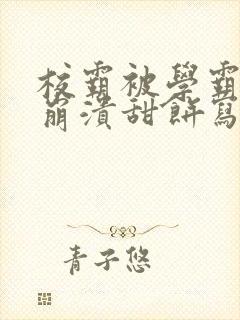 校霸被學霸
崩潰甜餅寫
青子悠